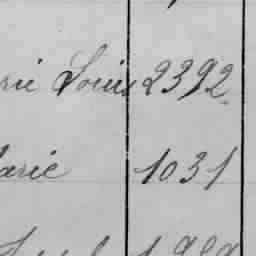 rie Louis 2392
arie 1031